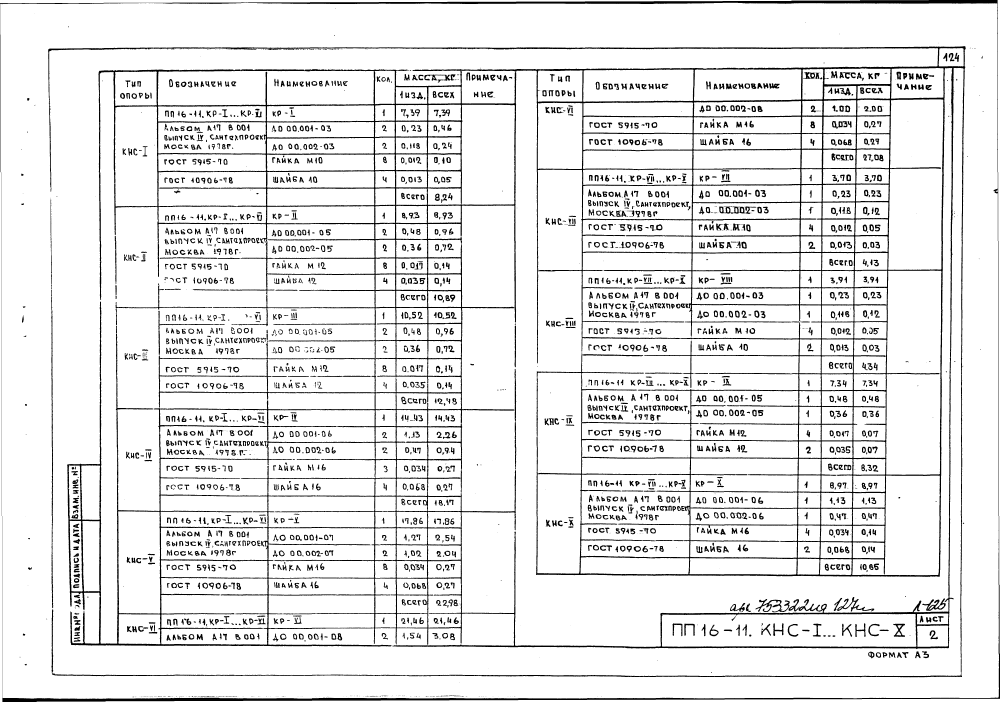 124
Тип опоры | Обозначение | Наименование | Кол. | Масса, кг 1 изд. | Всех | Примечание
КНС-I | ПП16-11. КР-I... КР-VI | КР-I | 1 | 7,39 | 7,39
Альбом А17 В 001 | ДО 00.001-03 | 2 | 0,23 | 0,46
выпуск IV, Сантехпроект
Москва 1978г. | ДО 00.002-03 | 2 | 0,118 | 0,24
ГОСТ 5915-70 | Гайка М10 | 8 | 0,012 | 0,10
ГОСТ 10906-78 | Шайба 10 | 4 | 0,013 | 0,05
Всего | 8,24
КНС-II | ПП16-11. КР-I... КР-VI | КР-II | 1 | 8,93 | 8,93
Альбом А17 В 001 | ДО 00.001-05 | 2 | 0,48 | 0,96
выпуск IV, Сантехпроект
Москва 1978г. | ДО 00.002-05 | 2 | 0,36 | 0,72
ГОСТ 5915-70 | Гайка М12 | 8 | 0,017 | 0,14
ГОСТ 10906-78 | Шайба 12 | 4 | 0,035 | 0,14
Всего | 10,89
КНС-III | ПП16-11. КР-I. -VI | КР-III | 1 | 10,52 | 10,52
Альбом А17 В 001 | ДО 00.001-05 | 2 | 0,48 | 0,96
выпуск IV, Сантехпроект
Москва 1978г | ДО 00.002-05 | 2 | 0,36 | 0,72
ГОСТ 5915-70 | Гайка М12 | 8 | 0.017 | 0,14
ГОСТ 10906-78 | Шайба 12 | 4 | 0,035 | 0,14
Всего | 12,48
КНС-IV | ПП16-11. КР-I... КР-VI | КР-IV | 1 | 14.43 | 14.43
Альбом А17 В 001 | ДО 00.001-06 | 2 | 1,13 | 2,26
выпуск IV, Сантехпроект
Москва 1978г. | ДО 00.002-06 | 2 | 0,47 | 0,94
ГОСТ 5915-70 | Гайка М16 | 3 | 0,034 | 0,27
ГОСТ 10906-78 | Шайба 16 | 4 | 0,068 | 0,27
Всего | 18,17
КНС-V | ПП16-11. КР-I... КР-VI | КР-V | 1 | 17,86 | 17.86
Альбом А17 В 001 | ДО 00.001-07 | 2 | 1,27 | 2,54
выпуск IV, Сантехпроект
Москва 1978г | ДО 00.002-07 | 2 | 1,02 | 2,04
ГОСТ 5915-70 | Гайка М16 | 8 | 0,034 | 0,27
ГОСТ 10906-78 | Шайба 16 | 4 | 0,068 | 0,27
Всего | 22,98
КНС-VI | ПП16-11. КР-I... КР-VI | КР-VI | 1 | 21,46 | 21,46
Альбом А17 В 001 | ДО 00.001-08 | 2 | 1,54 | 3.08
Тип опоры | Обозначение | Наименование | Кол. | Масса, кг 1 изд. | Всех | Примечание
КНС-VI | ДО 00.002-08 | 2 | 1.00 | 2.00
ГОСТ 5915-70 | Гайка М16 | 8 | 0,034 | 0,27
ГОСТ 10906-78 | Шайба 16 | 4 | 0,068 | 0,27
Всего | 27,08
КНС-VII | ПП16-11. КР-VII... КР-X | КР-VII | 1 | 3,70 | 3,70
Альбом А17 В 001 | ДО 00.001-03 | 1 | 0,23 | 0,23
выпуск IV, Сантехпроект,
Москва 1978г | ДО 00.002-03 | 1 | 0,118 | 0,12
ГОСТ 5915-70 | Гайка М10 | 4 | 0,012 | 0,05
ГОСТ 10906-78 | Шайба 10 | 2 | 0,013 | 0,03
Всего | 4,13
КНС-VIII | ПП16-11. КР-VII... КР-X | КР-VIII | 1 | 3,91 | 3,91
Альбом А17 В 001 | ДО 00.001-03 | 1 | 0,23 | 0,23
выпуск IV, Сантехпроект,
Москва 1978г | ДО 00.002-03 | 1 | 0,118 | 0,12
ГОСТ 5915-70 | Гайка М10 | 4 | 0,012 | 0,05
ГОСТ 10906-78 | Шайба 10 | 2 | 0,013 | 0,03
Всего | 4.34
КНС-IX | ПП16-11 КР-VII... КР-X | КР-IX | 1 | 7.34 | 7,34
Альбом А17 В 001 | ДО 00.001-05 | 1 | 0,48 | 0,48
выпуск IV, Сантехпроект,
Москва 1978г | ДО 00.002-05 | 1 | 0,36 | 0,36
ГОСТ 5915-70 | Гайка М12 | 4 | 0,017 | 0,07
ГОСТ 10906-78 | Шайба 12 | 2 | 0,035 | 0,07
Всего | 8,32
КНС-X | ПП16-11 КР-VII... КР-X | КР-X | 1 | 8,97 | 8,97
Альбом А17 В 001 | ДО 00.001-06 | 1 | 1,13 | 1,13
выпуск IV, Сантехпроект,
Москва 1978г | ДО 00.002-06 | 1 | 0,47 | 0,47
ГОСТ 5915-70 | Гайка М16 | 4 | 0,034 | 0,14
ГОСТ 10906-78 | Шайба 16 | 2 | 0,068 | 0,14
Всего | 10,85
Взам. инв. №
Подпись и дата
Инв. №
Л-125
ПП16-11. КНС-I... КНС-X
Лист
2
Формат А3